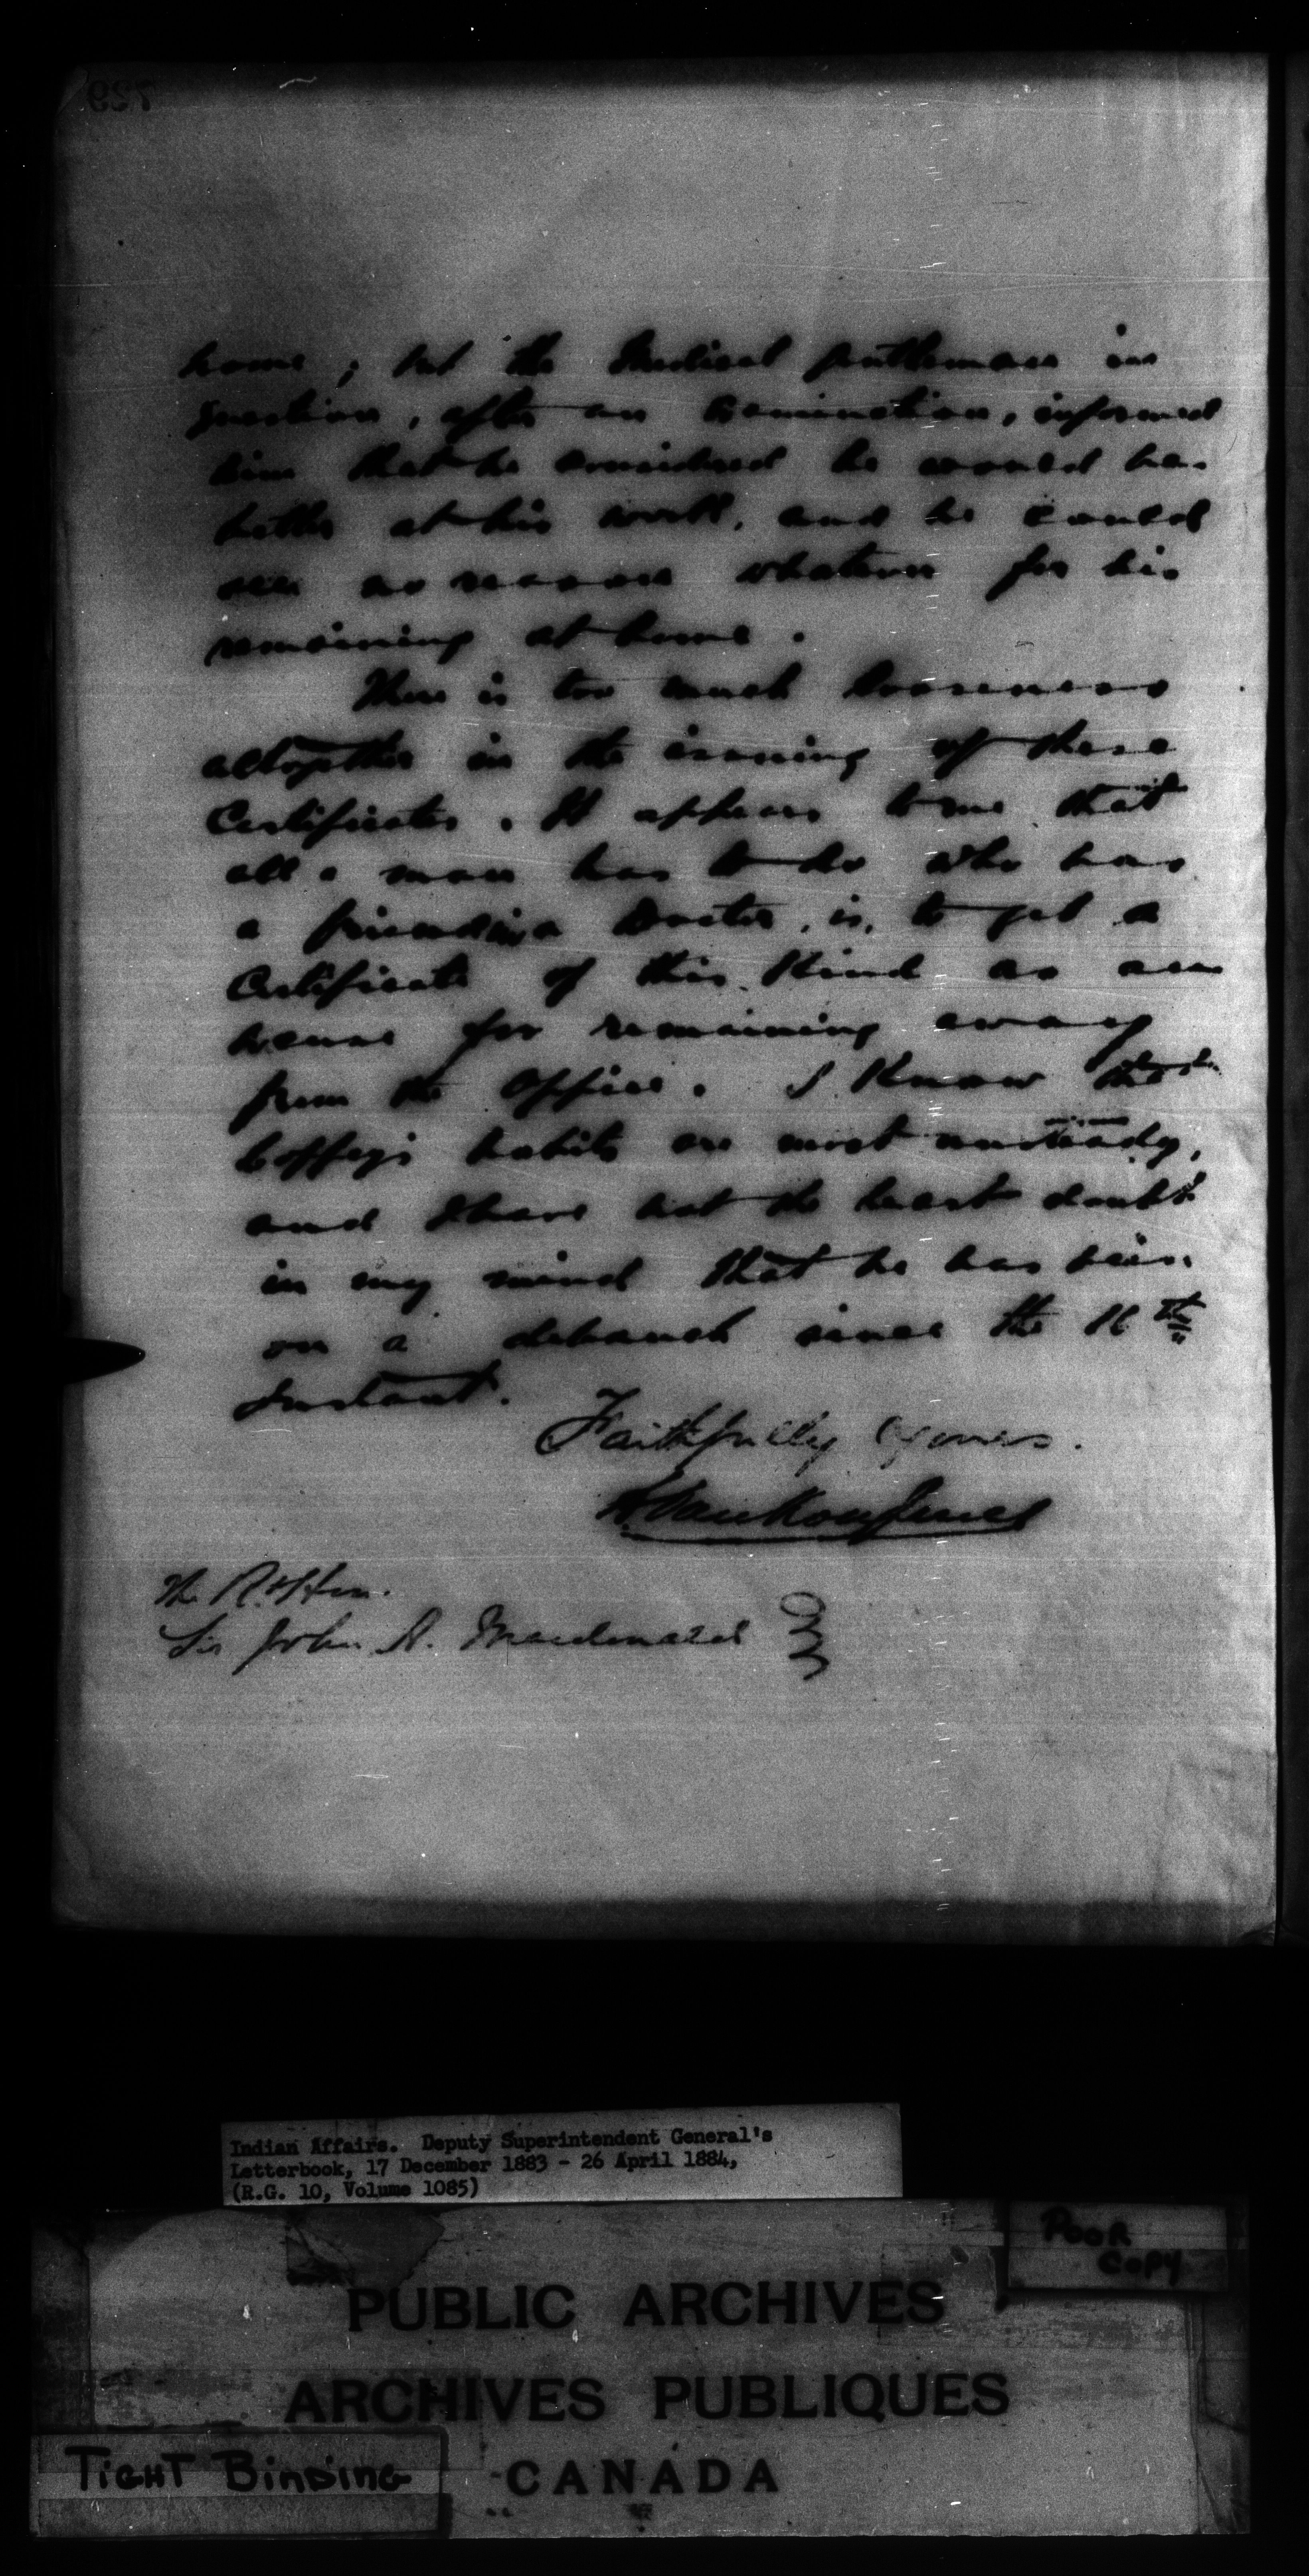 729
home; but the Medical gentleman in
question, after an examination, informed
him that he considered he would be
better at his work, and he could
see no reason whatever for his
remaining at home.
There is too much looseness
altogether in the issuing of these
Certificates. It appears to me that
all a man has to do who has
a friend in a Doctor, is, to get a
Certificate of this Kind as an
excuse for remaining away
from the Office. I Know that
Coffey's habits are most unsteady,
and I have not the least doubt
in my mind that he has been
on a debauch since the 16th
Instant.
Faithfully Yours.
L. VanKoughnet
The Rt Hon.
Sir John A. Macdonald
Indian Affairs. Deputy Superintendent General's
Letterbook, 17 December 1883 - 26 April 1884,
(R.G. 10, Volume 1085)
POOR
COPY
PUBLIC ARCHIVES
ARCHIVES PUBLIQUES
CANADA
TIGHT BINDING